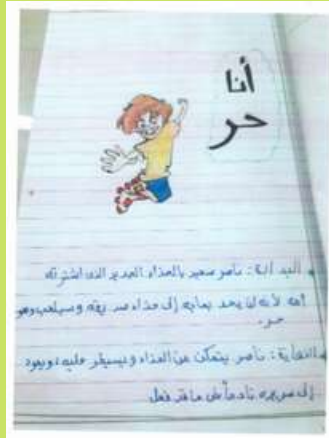 أنا
حر
البداية : ناصر سعيد بالحذاء الجديد الذي اشترته
أمه لأنه لن يحتاج إلى حذاء صديقه وسيلعب وهو
حر.
النهاية : ناصر يتمكن من الحذاء ويسيطر عليه ، ويعود
إلى سريره نادماً على ما قد فعل